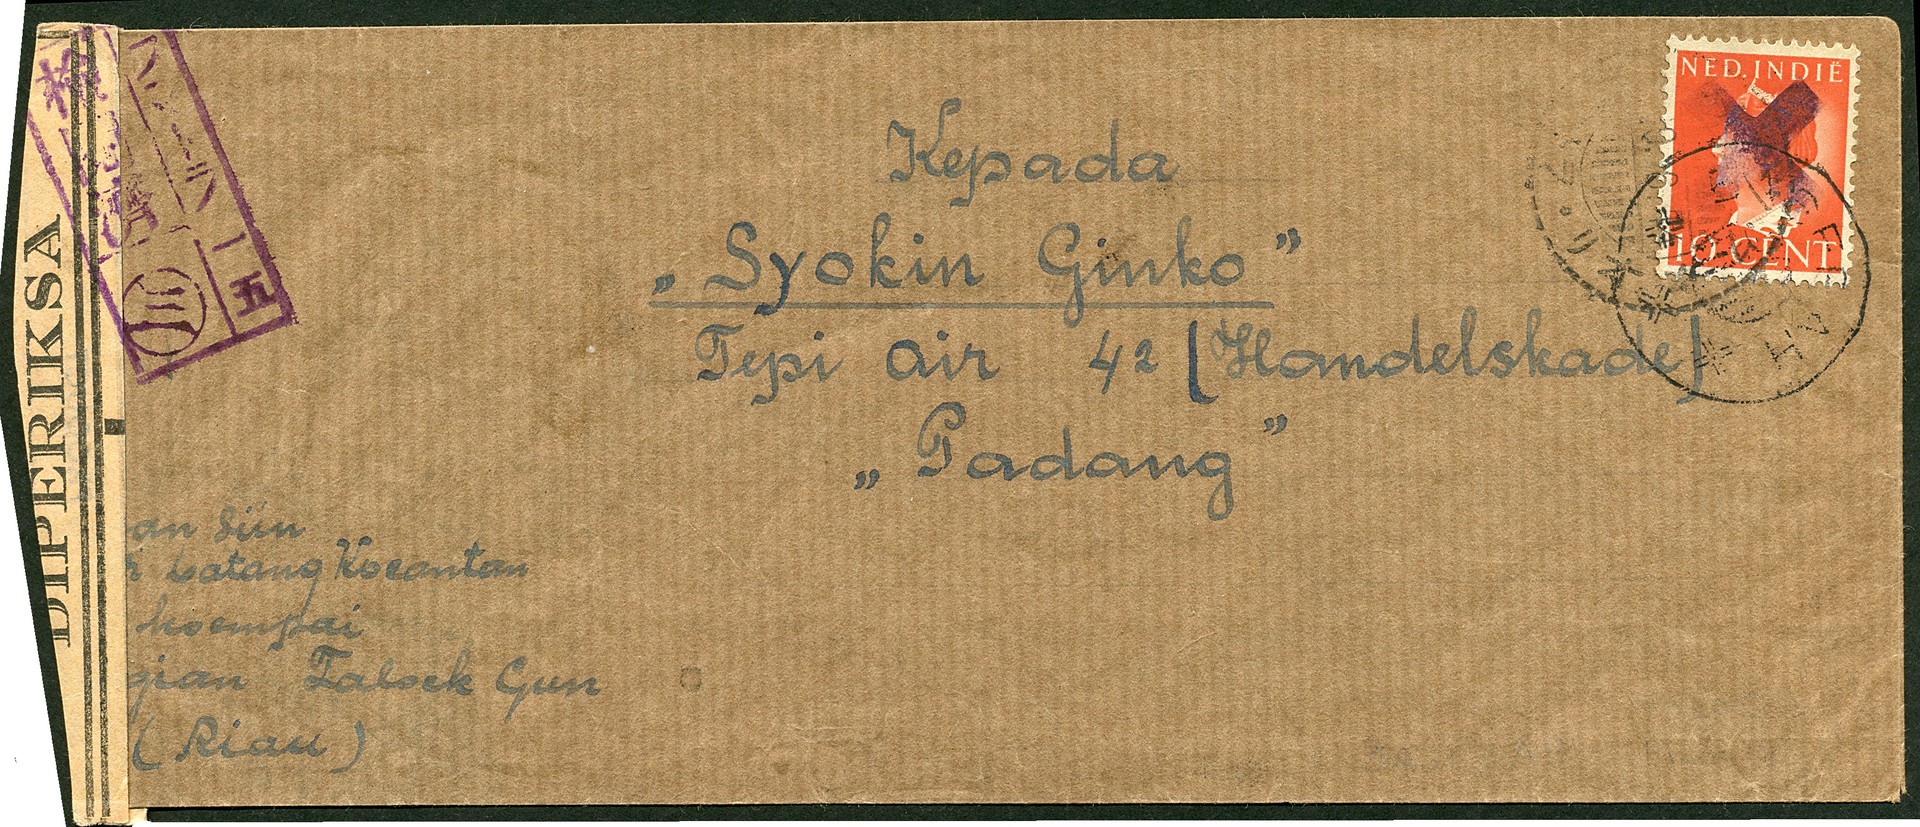 DIPERIKSA
検閲済
五
三
NED. INDIË
10 CENT
Kepada
„Syokin Ginko”
Tepi air 42 (Handelskade)
„Padang”
an Siin
Batang Koeantan
koempai
gian Talock Gun
(Riau)